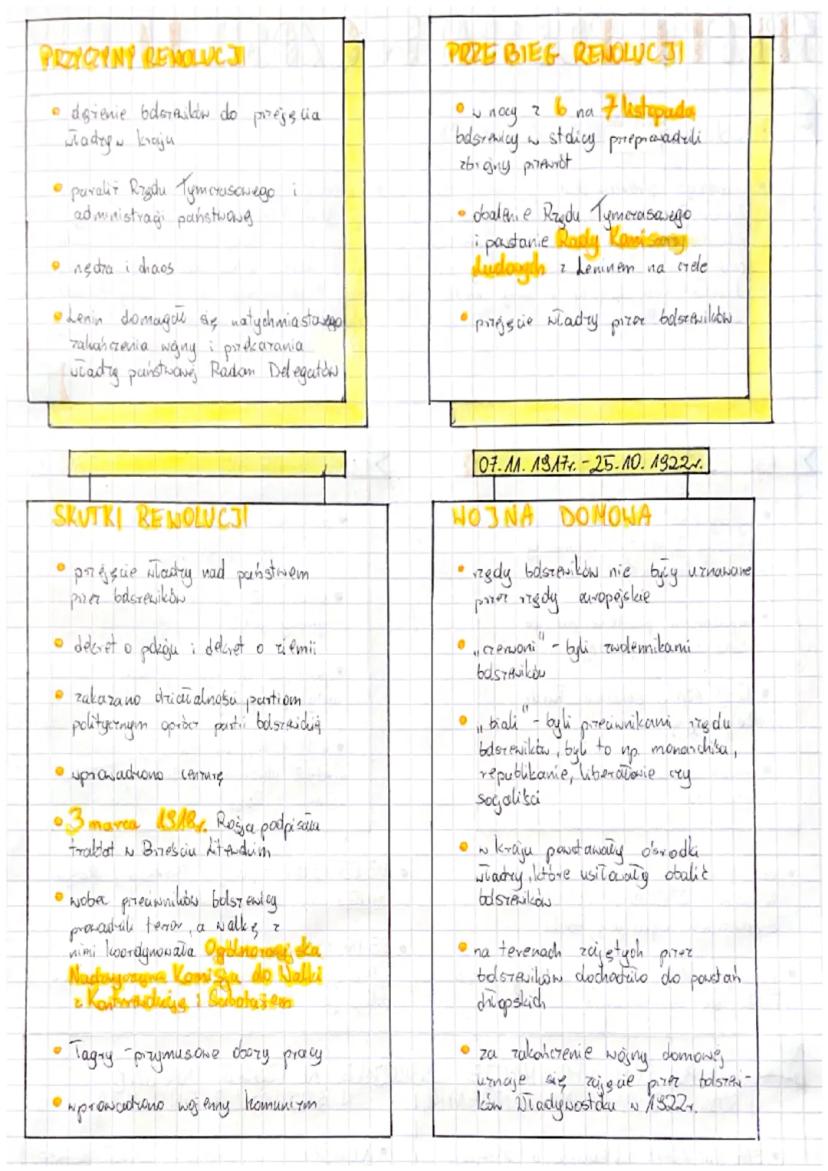 PRZYCZYNY REWOLUCJI
• dążenie bolszewików do przejęcia
władzy w kraju
• paraliż Rządu Tymczasowego i
administracji państwowej
• nędza i chaos
• Lenin domagał się natychmiastowego
zakończenia wojny i przekazania
władzy państwowej Radom Delegatów
PRZEBIEG REWOLUCJI
• w nocy z 6 na 7 listopada
bolszewicy w stolicy przeprowadzili
zbrojny przewrót
• obalenie Rządu Tymczasowego
i powstanie Rady Komisarzy
Ludowych z Leninem na czele
• przejęcie władzy przez bolszewików
SKUTKI REWOLUCJI
• przejęcie władzy nad państwem
przez bolszewików
• dekret o pokoju i dekret o ziemii
• zakazano działalności partiom
politycznym oprócz partii bolszewickiej
• wprowadzono cenzurę
• 3 marca 1918r. Rosja podpisała
traktat w Brześciu Litewskim
• wobec przeciwników bolszewicy
prowadzili terror, a walkę z
nimi koordynowała Ogólnorosyjska
Nadzwyczajna Komisja do Walki
z Kontrrewolucją i Sabotażem
• Łagry - przymusowe obozy pracy
• wprowadzono wojenny komunizm
07.11.1917r. - 25.10.1922r.
WOJNA DOMOWA
• rządy bolszewików nie były uznawane
przez rządy europejskie
• "czerwoni" - byli zwolennikami
bolszewików
• "biali" - byli przeciwnikami rządu
bolszewików, byli to np. monarchiści,
republikanie, liberałowie czy
socjaliści
• w kraju powstawały ośrodki
władzy, które usiłowały obalić
bolszewików
• na terenach zajętych przez
bolszewików dochodziło do powstań
chłopskich
• za zakończenie wojny domowej
uznaje się zajęcie przez bolszewi-
ków Władywostoku w 1922r.